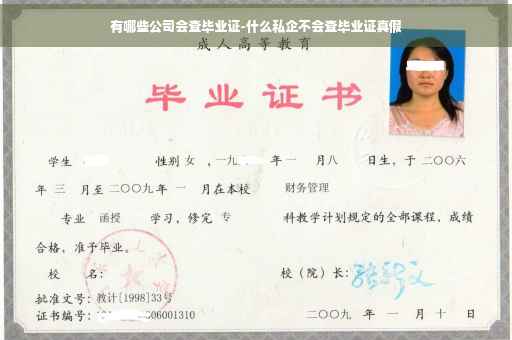 有哪些公司会查毕业证-什么私企不会查毕业证真假
成人高等教育
毕业证书
学生 性别 女 ，一九 年 一 月 八 日生，于 二〇〇六
年 三 月至 二〇〇九 年 一 月在本校 财务管理
专业 函授 学习，修完 专 科教学计划规定的全部课程，成绩
合格，准予毕业。
校 名： 校（院）长：
批准文号：教计[1998]33号
证书编号： 06001310 二〇〇九 年 一 月 十 日